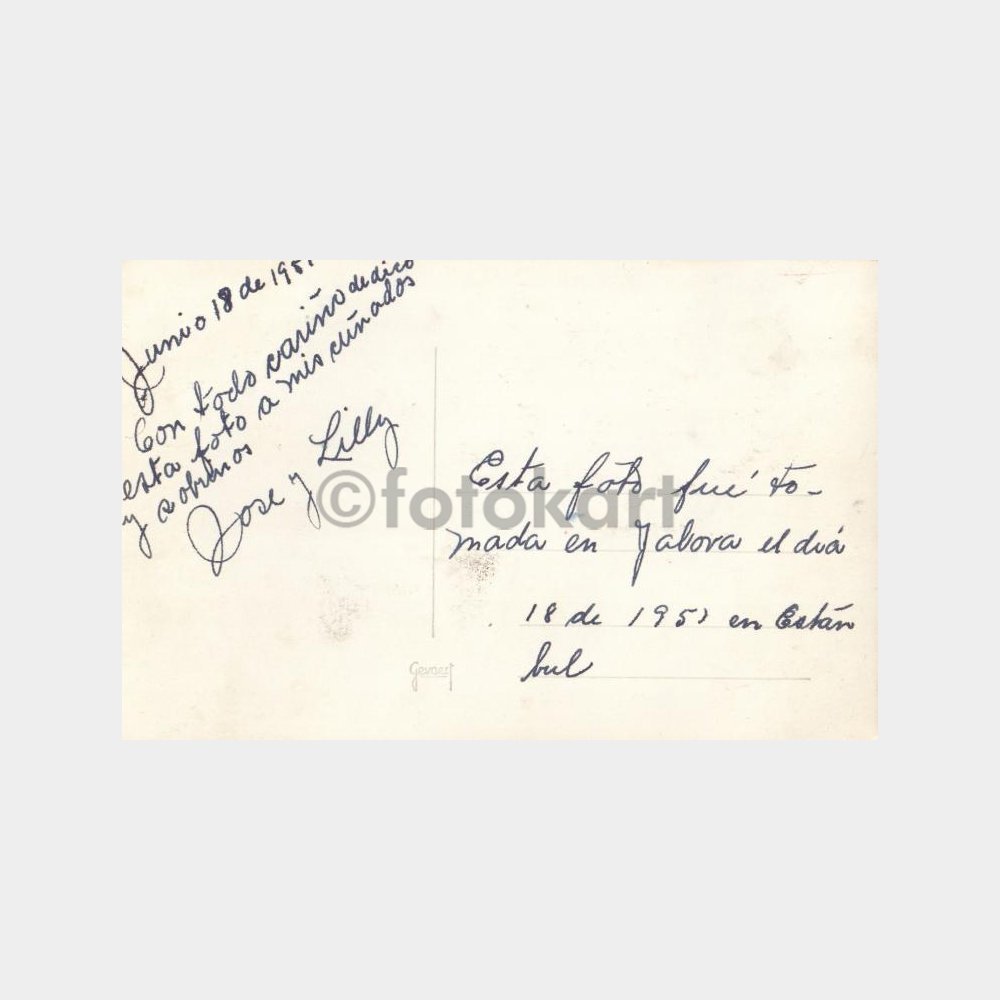 Junio 18 de 195
Con todo cariño dedico
esta foto a mis cuñados
y sobrinos
Jose y Lilly
©fotokart
Esta foto fué to-
mada en el diá
18 de 195 en Están
bul
Gevaert